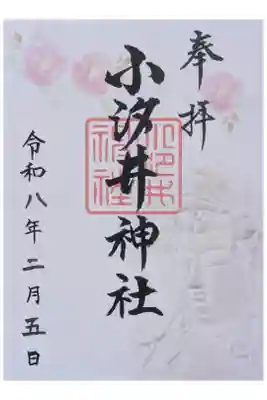 奉拝
小汐井神社
小汐井神社
令和八年二月五日